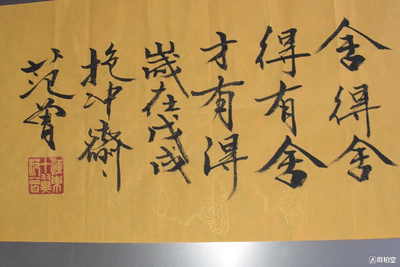 舍得舍
得有舍
才有得
歲在戊戌
抱冲齋
范曾
微拍堂